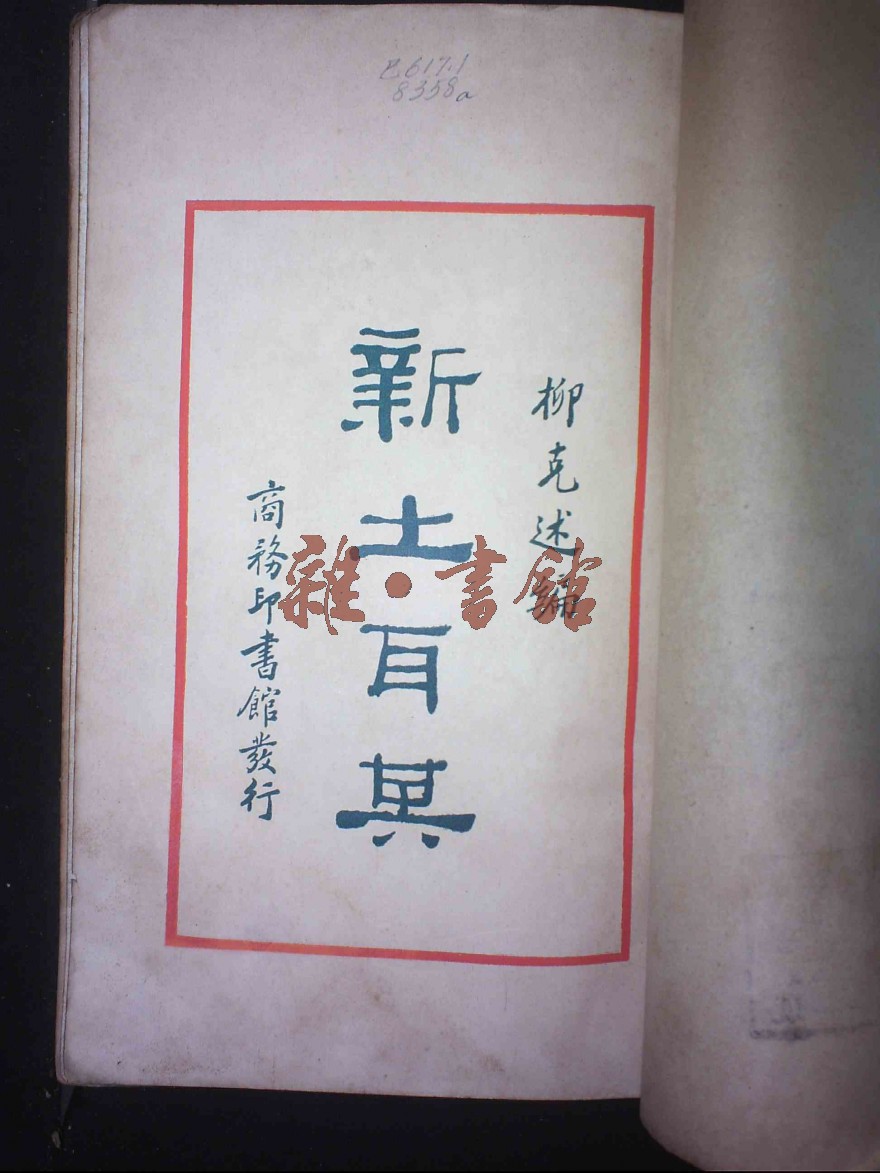 柳克述編
新土耳其
商務印書館發行
雜•書館